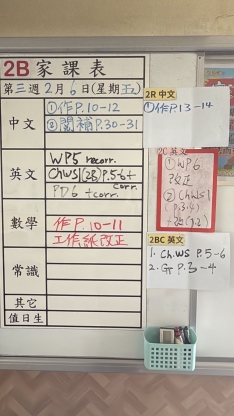 2B 家課表
第三週2月6日(星期五)
中文
①作P.10-12
②閱補P.30-31
英文
WP5 recorr.
ChWS1(2B)P.5-6+
corr.
PD6 +corr.
數學
作P.10-11
工作紙改正
常識
其它
值日生
2R 中文
①作P.13-14
2C 英文
①WP6
改正
②ChWS1
2BC 英文
1. Ch.WS P.5-6
2. G P.3-4